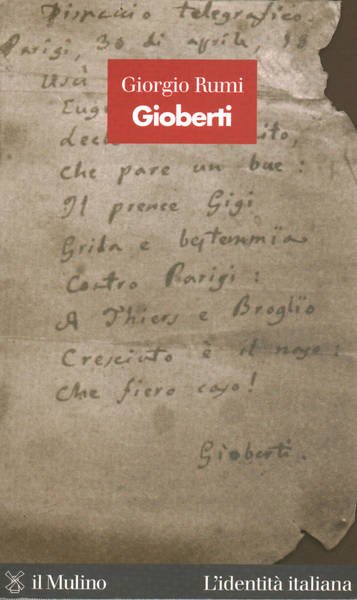 Dispaccio telegrafico.
Parigi, 30 di aprile, 18
Giorgio Rumi
Gioberti
che pare un bue:
Il prence Gigi
Grida e bestemmia
Contro Parigi:
A Thiers e Broglio
Cresciuto è il naso:
Che fiero caso!
Gioberti.
il Mulino
L'identità italiana